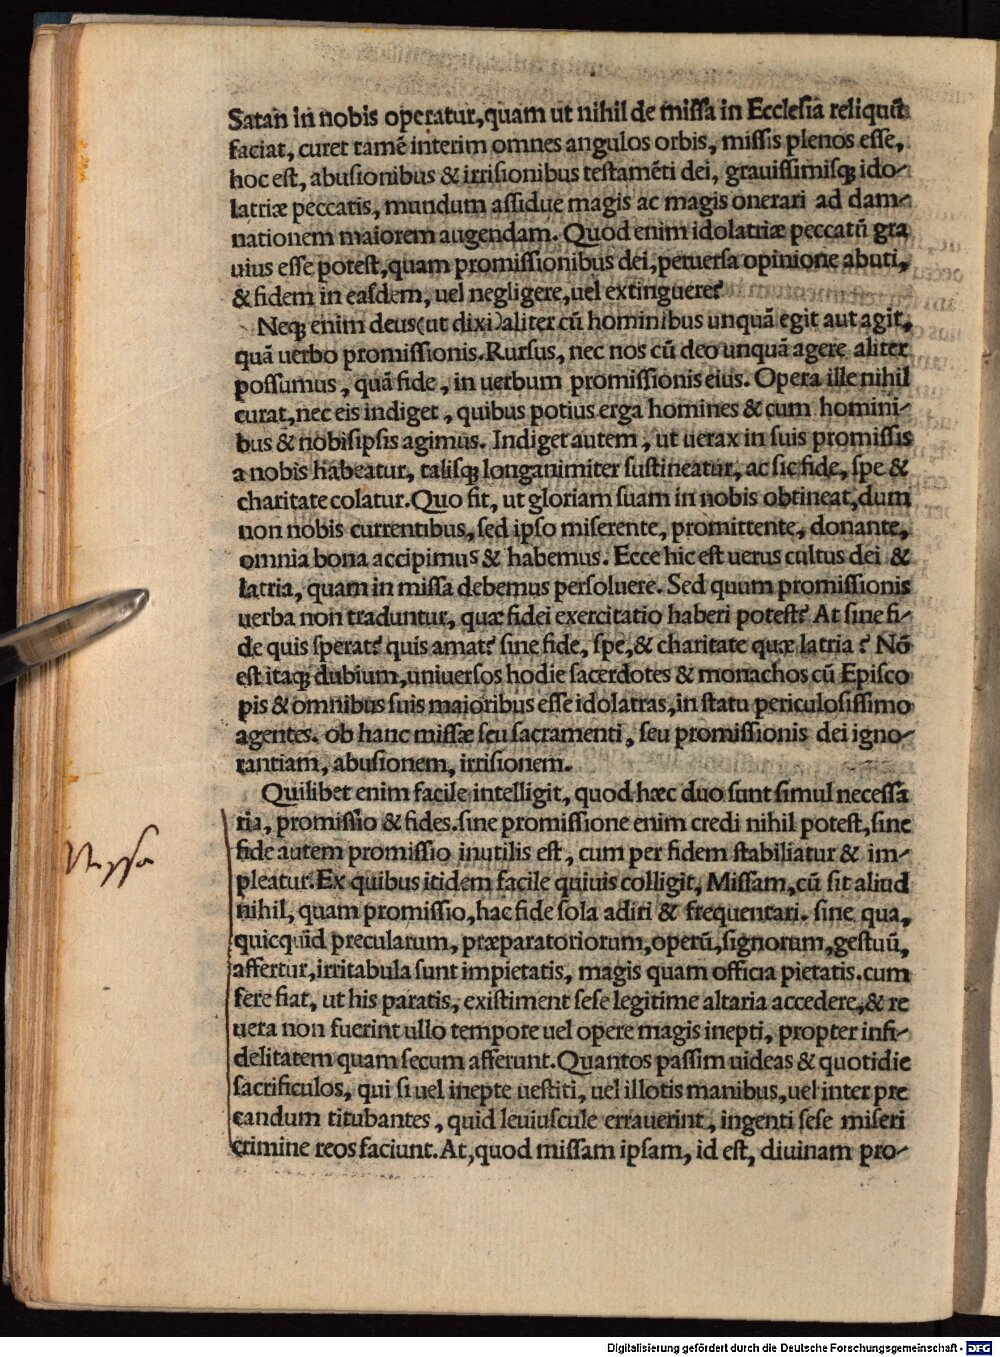 Satan in nobis operatur,quam ut nihil de miſſa in Eccleſia reliquũ
faciat, curet tamẽ interim omnes angulos orbis, miſſis plenos eſſe,
hoc eſt, abuſionibus & irriſionibus teſtamẽti dei, grauiſſimiſq; ido-
latriæ peccatis, mundum aſſidue magis ac magis onerari ad dam-
nationem maiorem augendam. Quod enim idolatriæ peccatũ gra
uius eſſe poteſt,quam promiſſionibus dei,peruerſa opinione abuti,
& fidem in eaſdem, uel negligere,uel extinguere?
Neq; enim deus(ut dixi)aliter cũ hominibus unquã egit aut agit,
quã uerbo promiſſionis.Rurſus, nec nos cũ deo unquã agere aliter
poſſumus, quã fide, in uerbum promiſſionis eius. Opera ille nihil
curat,nec eis indiget, quibus potius erga homines & cum homini-
bus & nobiſipſis agimus. Indiget autem, ut uerax in ſuis promiſſis
a nobis habeatur, taliſq; longanimiter ſuſtineatur, ac ſic fide, ſpe &
charitate colatur.Quo fit, ut gloriam ſuam in nobis obtineat,dum
non nobis currentibus, ſed ipſo miſerente, promittente, donante,
omnia bona accipimus & habemus. Ecce hic eſt uerus cultus dei &
latria, quam in miſſa debemus perſoluere. Sed quum promiſſionis
uerba non traduntur, quæ fidei exercitatio haberi poteſt? At ſine fi-
de quis ſperat? quis amat? ſine fide, ſpe,& charitate quæ latria? Nõ
eſt itaq; dubium,uniuerſos hodie ſacerdotes & monachos cũ Epiſco
pis & omnibus ſuis maioribus eſſe idolatras,in ſtatu periculoſiſſimo
agentes. ob hanc miſſæ ſeu ſacramenti, ſeu promiſſionis dei igno-
rantiam, abuſionem, irriſionem.
Quilibet enim facile intelligit, quod hæc duo ſunt ſimul neceſſa
ria, promiſſio & fides.ſine promiſſione enim credi nihil poteſt,ſine
fide autem promiſſio inutilis eſt, cum per fidem ſtabiliatur & im-
pleatur.Ex quibus itidem facile quiuis colligit, Miſſam,cũ ſit aliud
nihil, quam promiſſio,hac fide ſola adiri & frequentari. ſine qua,
quicquid precularum, præparatoriorum,operũ,ſignorum,geſtuũ,
affertur,irritabula ſunt impietatis, magis quam officia pietatis.cum
fere fiat, ut his paratis, exiſtiment ſeſe legitime altaria accedere,& re
uera non fuerint ullo tempore uel opere magis inepti, propter infi-
delitatem quam ſecum afferunt.Quantos paſſim uideas & quotidie
ſacrificulos, qui ſi uel inepte ueſtiti, uel illotis manibus,uel inter pre
candum titubantes, quid leuiuſcule errauerint, ingenti ſeſe miſeri
crimine reos faciunt.At,quod miſſam ipſam, id eſt, diuinam pro-
Digitalisierung gefördert durch die Deutsche Forschungsgemeinschaft - DFG